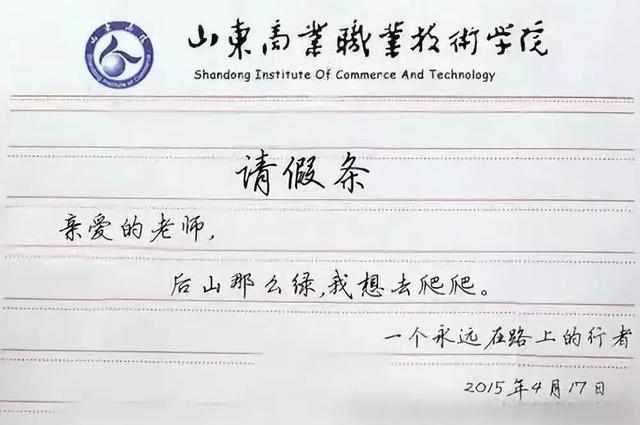 山東商業職業技術学院
Shandong Institute Of Commerce And Technology
请假条
亲爱的老师,
后山那么绿,我想去爬爬。
一个永远在路上的行者
2015年4月17日